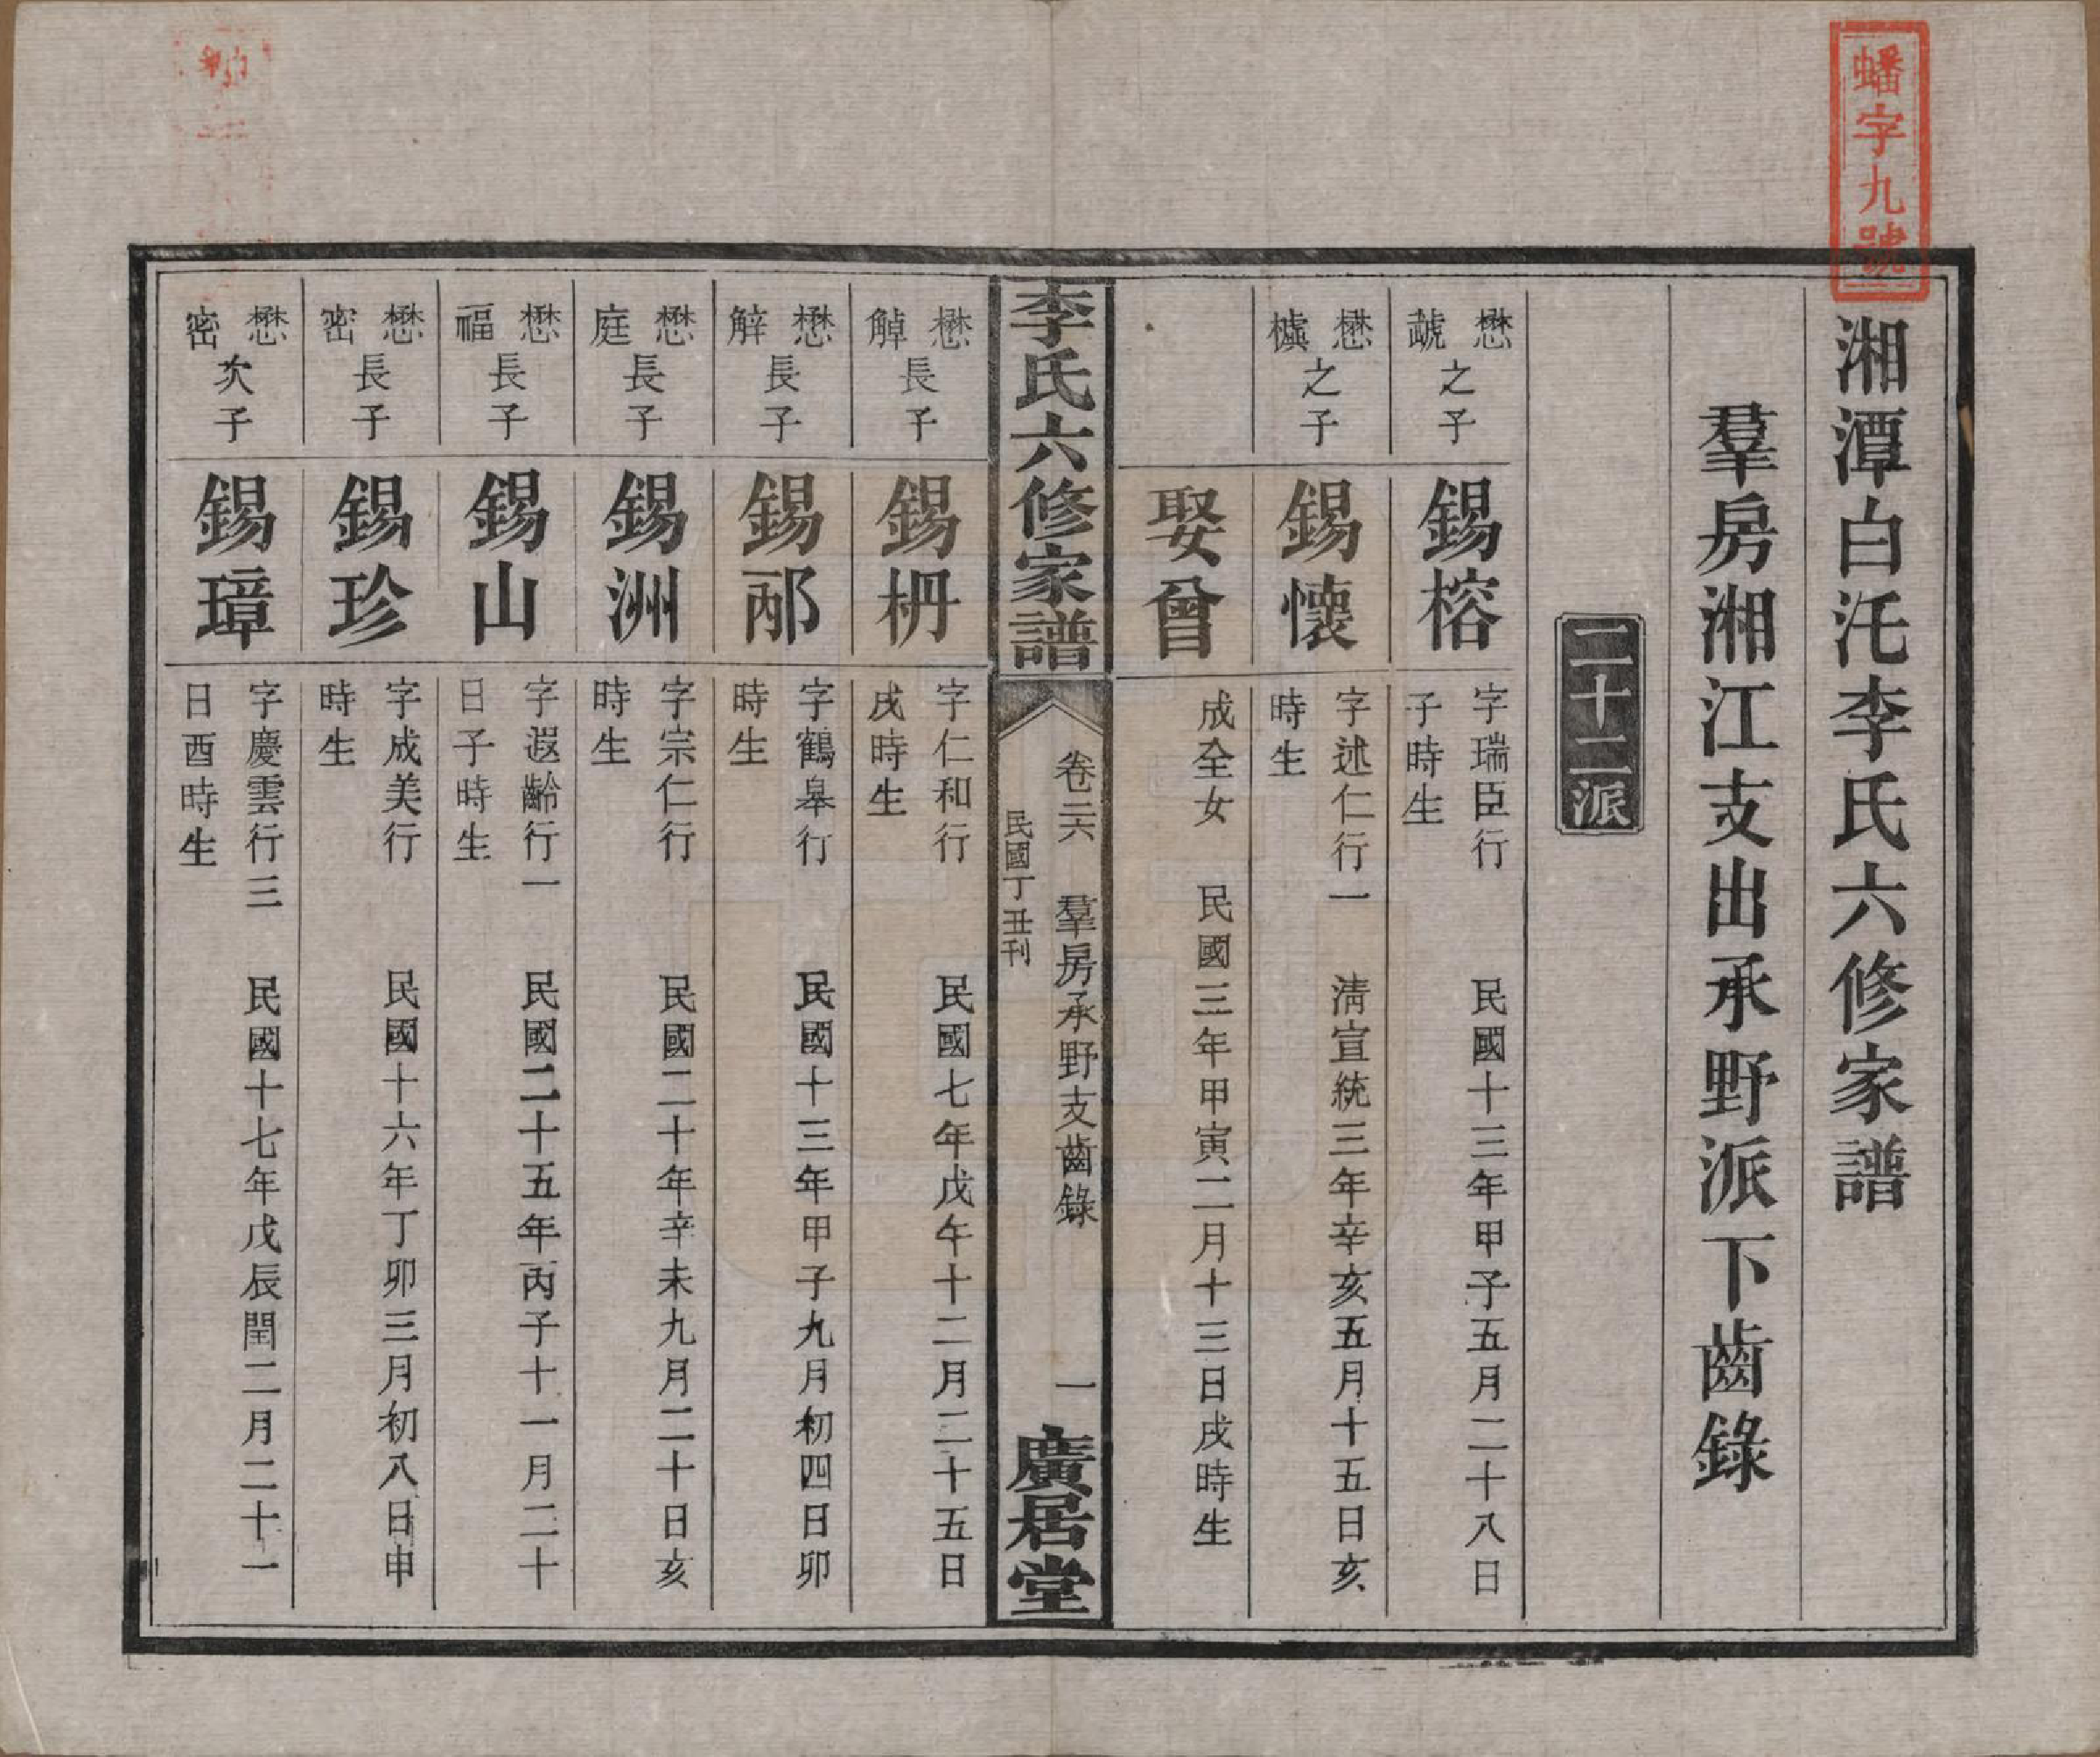 蟠字九號
湘潭白汑李氏六修家譜
羣房湘江支出承野派下齒錄
二十二派
懋虩之子
錫榕
字瑞臣行 民國十三年甲子五月二十八日
子時生
懋櫖之子
錫懷
字述仁行一 清宣統三年辛亥五月十五日亥
時生
娶曾
成全女 民國三年甲寅二月十三日戌時生
李氏六修家譜
卷二六 羣房承野支齒錄 一
民國丁丑刊
廣居堂
懋䚛長子
錫枬
字仁和行 民國七年戊午十二月二十五日
戌時生
懋觪長子
錫邴
字鶴皋行 民國十三年甲子九月初四日卯
時生
懋庭長子
錫洲
字宗仁行 民國二十年辛未九月二十日亥
時生
懋福長子
錫山
字遐齡行一 民國二十五年丙子十一月二十
日子時生
懋密長子
錫珍
字成美行 民國十六年丁卯三月初八日申
時生
懋密次子
錫璋
字慶雲行三 民國十七年戊辰閏二月二十一
日酉時生